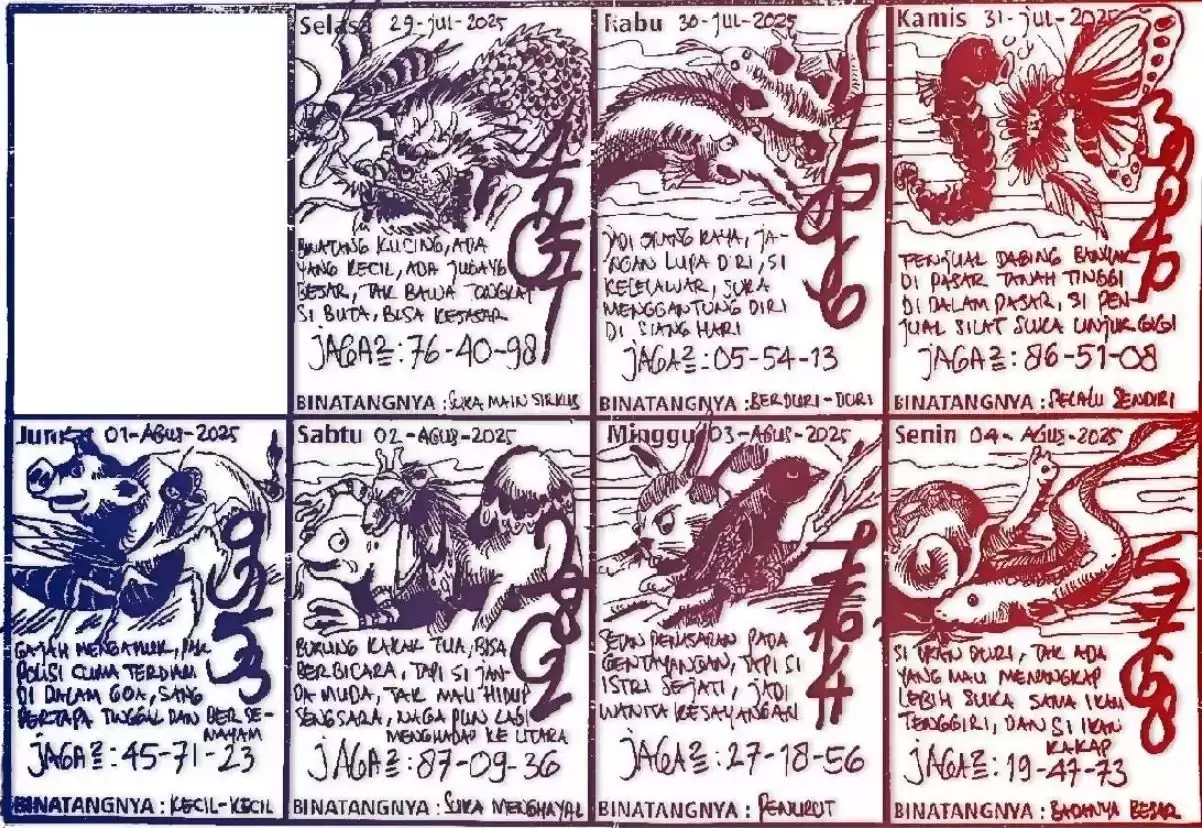 Selasa 29-jul-2025
BINATANG KUCING, ADA
YANG KECIL, ADA JUGAYG
BESAR, TAK BAWA TONGKAT
SI BUTA, BISA KESASAR
jAGA2 : 76-40-98
BINATANGNYA : SUKA MAIN SIRKUS
Rabu 30-jul-2025
JADI ORANG KAYA, JA-
NGAN LUPA DIRI, SI
KELELAWAR, SUKA
MENGGANTUNG DIRI
DI SIANG HARI
jAGA2 : 05-54-13
BINATANGNYA : BERDURI-DURI
Kamis 31-jul-2025
PENJUAL DAGING BANYAK
DI PASAR TANAH TINGGI
DI DALAM PASAR, SI PEN-
JUAL SILAT SUKA UNJUK GIGI
jAGA2 : 86-51-08
BINATANGNYA : SELALU SENDIRI
Jumat 01-AGUS-2025
GAJAH MENGAMUK, PAK
POLISI CUMA TERDIAM
DI DALAM GOA, SANG
PERTAPA TINGGAL DAN BERSE-
MAYAM
jAGA2 : 45-71-23
BINATANGNYA : KECIL-KECIL
Sabtu 02-AGUS-2025
BURUNG KAKAK TUA, BISA
BERBICARA, TAPI SI JAN-
DA MUDA, TAK MAU HIDUP
SENGSARA, NAGA PUN LAGI
MENGHADAP KE UTARA
jAGA2 : 87-09-36
BINATANGNYA : SUKA MENGHAYAL
Minggu 03-AGUS-2025
SETAN PENASARAN PADA
GENTAYANGAN, TAPI SI
ISTRI SEJATI, JADI
WANITA KESAYANGAN
jAGA2 : 27-18-56
BINATANGNYA : PENURUT
Senin 04-AGUS-2025
SI IKAN DURI, TAK ADA
YANG MAU MENANGKAP
LEBIH SUKA SAMA IKAN
TENGGIRI, DAN SI IKAN
KAKAP
jAGA2 : 19-47-73
BINATANGNYA : BADANNYA BESAR